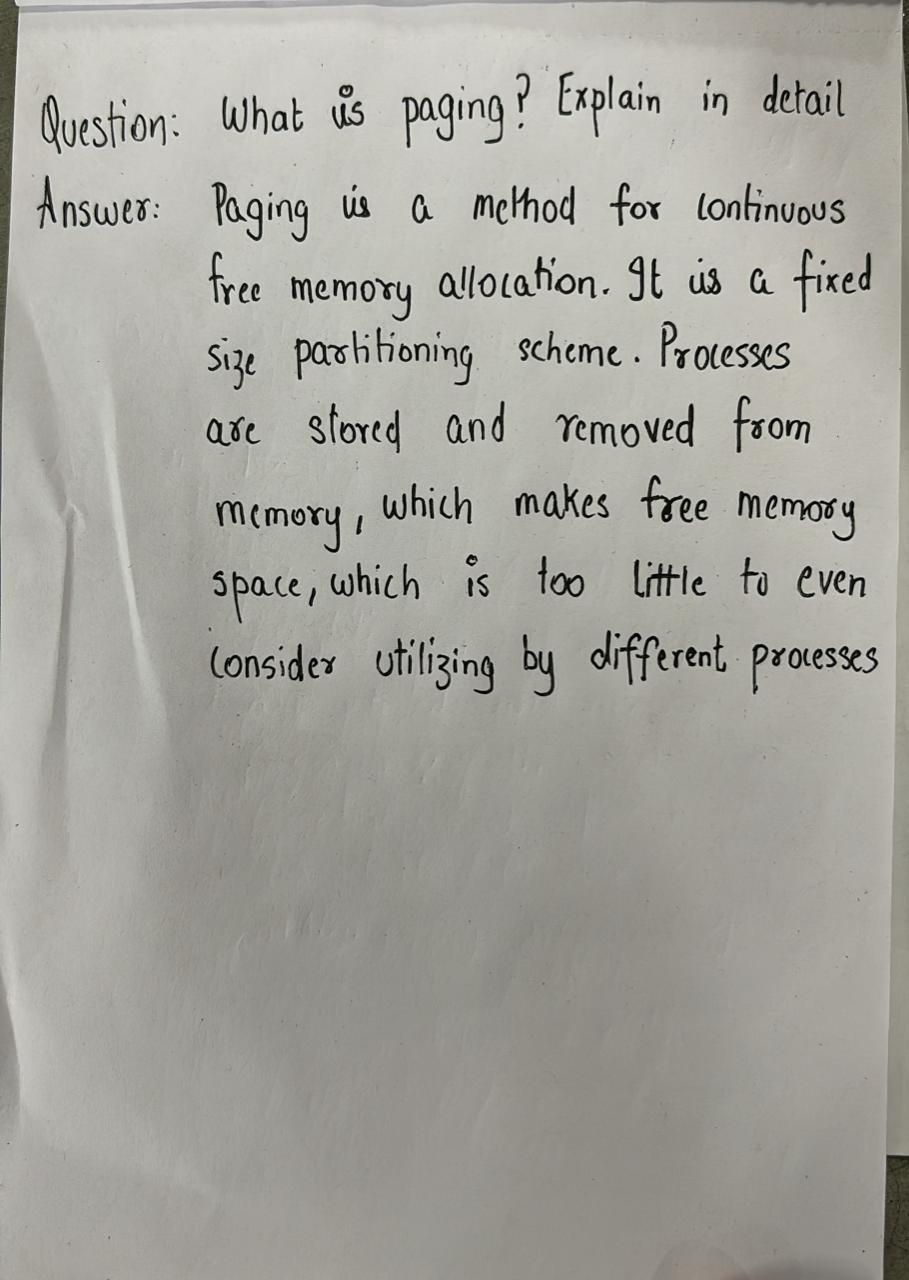 Question: What is paging? Explain in detail
Answer: Paging is a method for continuous
free memory allocation. It is a fixed
size partitioning scheme. Processes
are stored and removed from
memory, which makes free memory
space, which is too little to even
consider utilizing by different processes